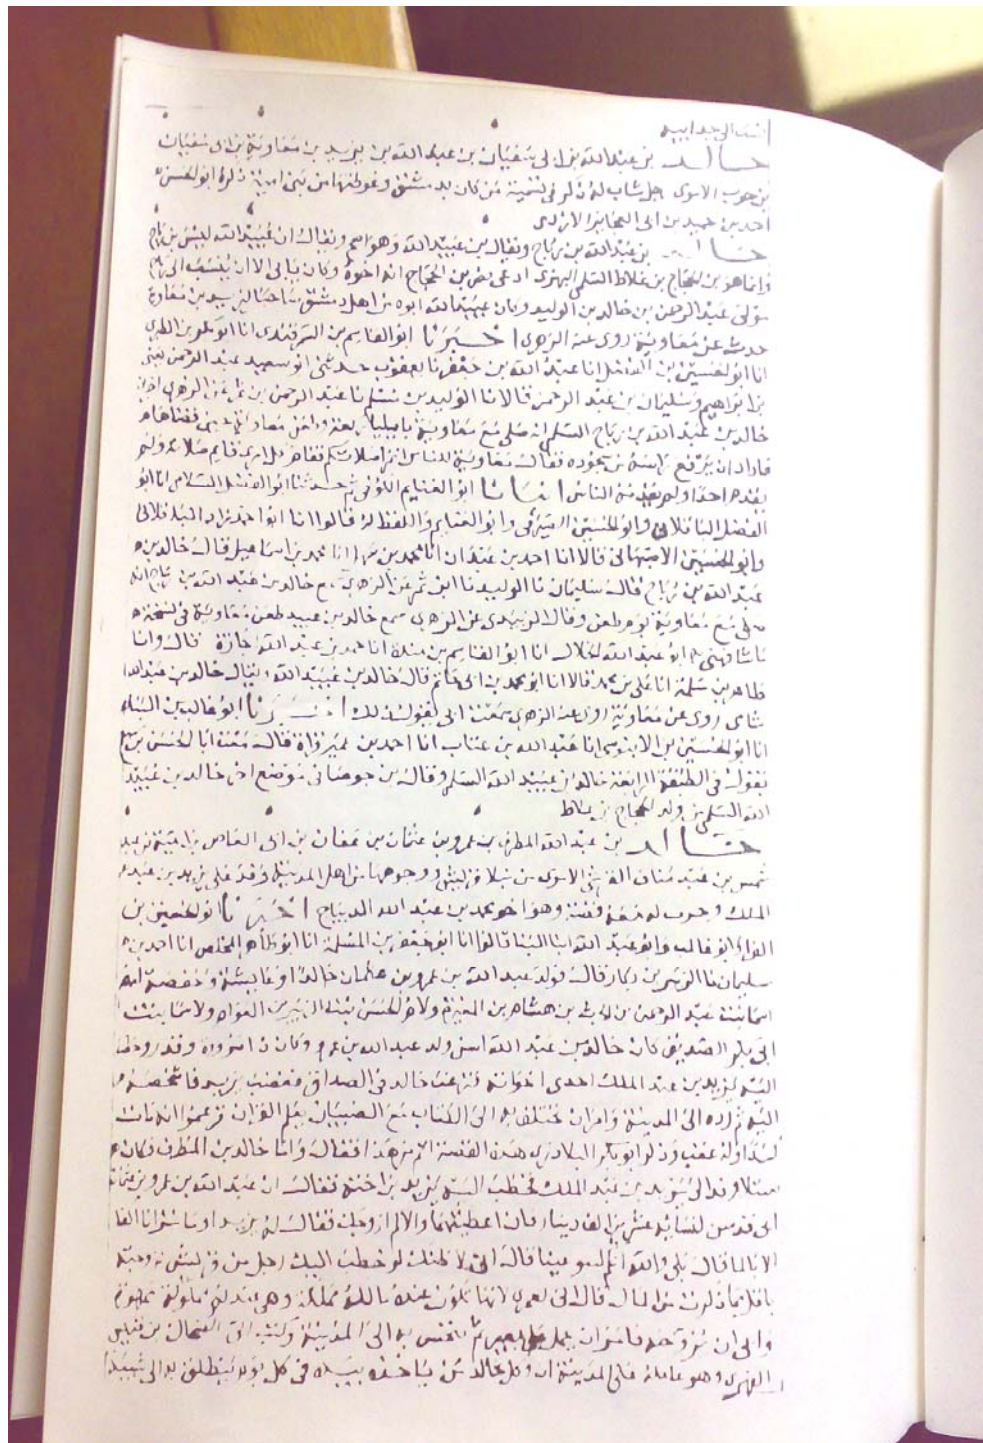 خالد بن عبد الله بن ابى سفيان بن عبد الله بن يزيد بن معاوية بن ابى سفيان
بن حرب الاموى رجل شاب له ذكر فى تسمية من كان بدمشق وغوطتها من بنى امية ذكره ابو الحسن
احمد بن حميد بن ابى العجايز الازدى
خالد بن عبد الله بن رباح ويقال بن عبيد الله وهو اصح ويقال ان عبيد الله ليس بن رباح
وانما هو بن الحجاج بن علاط السلمى البهزى ادعى نصر بن الحجاج انه اخوه وكان يابى الا ان ينسب الى رباح
مولى عبد الرحمن بن خالد بن الوليد وكان عبيد الله ابوه من اهل دمشق صاحبا ليزيد بن معاوية
حدث عن معاوية روى عنه الزهرى اخبرنا ابو القاسم بن السمرقندى انا ابو بكر بن الطبرى
انا ابو الحسين بن الفضل انا عبد الله بن جعفر نا يعقوب حدثنى ابو سعيد عبد الرحمن يعنى
بن ابراهيم وسليمان بن عبد الرحمن قالا نا الوليد بن مسلم نا عبد الرحمن بن نمر عن الزهرى
خالد بن عبد الله بن رباح السلمى انه صلى مع معاوية بايليا
فاراد ان يرفع راسه من سجوده فقال معاوية للناس
احدا ولم من الناس انبانا ابو الغنايم الكوفى ثم حدثنا ابو الفضل السلامى انا ابو
الفضل الباقلانى وابو الحسين الصيرفى وابو الغنايم واللفظ له قالوا انا ابو احمد زاد الباقلانى
وابو الحسين الاصبهانى قالا انا احمد بن عبدان انا محمد بن سهل انا محمد بن اسماعيل قال خالد بن
عبد الله بن رباح قال سليمان نا الوليد نا ابن نمر عن الزهرى سمع خالد بن عبد الله بن رباح انه
صلى مع معاوية يوم طعن وقال الزبيدى عن الزهرى سمع خالد بن عبيد طعن معاوية فى نسخة
ما شافهنى به ابو عبد الله الخلال انا ابو القاسم بن مندة انا حمد بن عبد الله اجازة قال وانا
طاهر بن سلمة انا على بن محمد قالا انا ابو محمد بن ابى حاتم قال خالد بن عبيد الله ويقال خالد بن عبد الله
شامى روى عن معاوية روى عنه الزهرى سمعت ابى يقول ذلك اخبرنا ابو غالب بن البناء
انا ابو الحسين بن الابنوسى انا عبد الله بن عتاب انا احمد بن عمير اجازة قال سمعت ابا الحسن بن سميع
يقول فى الطبقة الرابعة خالد بن عبيد الله السلمى وقال بن جوصا فى موضع اخر خالد بن عبيد
الله السلمى من ولد الحجاج بن علاط
خالد بن عبد الله المطرف بن عمرو بن عثمان بن عفان بن ابى العاص بن امية بن عبد
شمس بن عبد مناف القرشى الاموى من نبلا قريش ووجوهها من اهل المدينة وفد على يزيد بن عبد
الملك وجرت له معه قصة وهو اخو محمد بن عبد الله الديباج اخبرنا ابو الحسين بن
الفراء وابو غالب وابو عبد الله ابنا البنا قالوا انا ابو جعفر بن المسلمة انا ابو طاهر المخلص انا احمد بن
سليمان نا الزبير بن بكار قال فولد عبد الله بن عمرو بن عثمان خالدا وعايشة
اسما بنت عبد الرحمن بن الحرث بن هشام بن المغيرة ولام الحسن بنت الزبير بن العوام ولاسما بنت
ابى بكر الصديق كان خالد بن عبد الله اسن ولد عبد الله بن عمرو وكان ذا مروءة وقد
اليه يزيد بن عبد الملك احدى اخواته خالد فى الصداق فغضب يزيد فاشخصه
اليه ثم رده الى المدينة وامر ان يختلف به الى الكتاب مع الصبيان يعلم القران فزعموا انه مات
كمدا وله عقب وذكر ابو بكر البلاذرى هذه القصة اتم من هذا فقال واما خالد بن المطرف فكان
نبيلا وفد الى يزيد بن عبد الملك فخطب اليه يزيد بن اخته فقال ان عبد الله بن عمرو بن عثمان
ابى قد سن لنسائه عشرين الف دينار فان اعطيتنيها والا لم ازوجك فقال له يزيد او ما ترانا اكفا
الا بالمال قال بلى والله انكم لبنو عمنا قال انى لاظنك لو خطب اليك رجل من قريش زوجته
باقل مما ذكرت من المال قال اى لعمرى لانها تكون عنده مالكة مملكة وهى عندكم مملوكة مقهورة
وابى ان يزوجه فامر ان يحمل على بعير ثم ينخس به الى المدينة وكتب الى الضحاك بن قيس
الفهرى وهو عامله على المدينة ان وكل بخالد من ياخذه بيده فى كل يوم ينطلق به الى شيبة